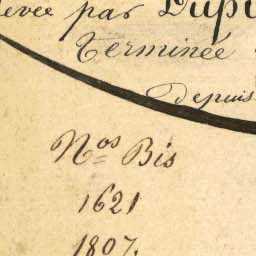 levée par Dupu
Terminée
Depuis
Nos Bis
1621
1807.